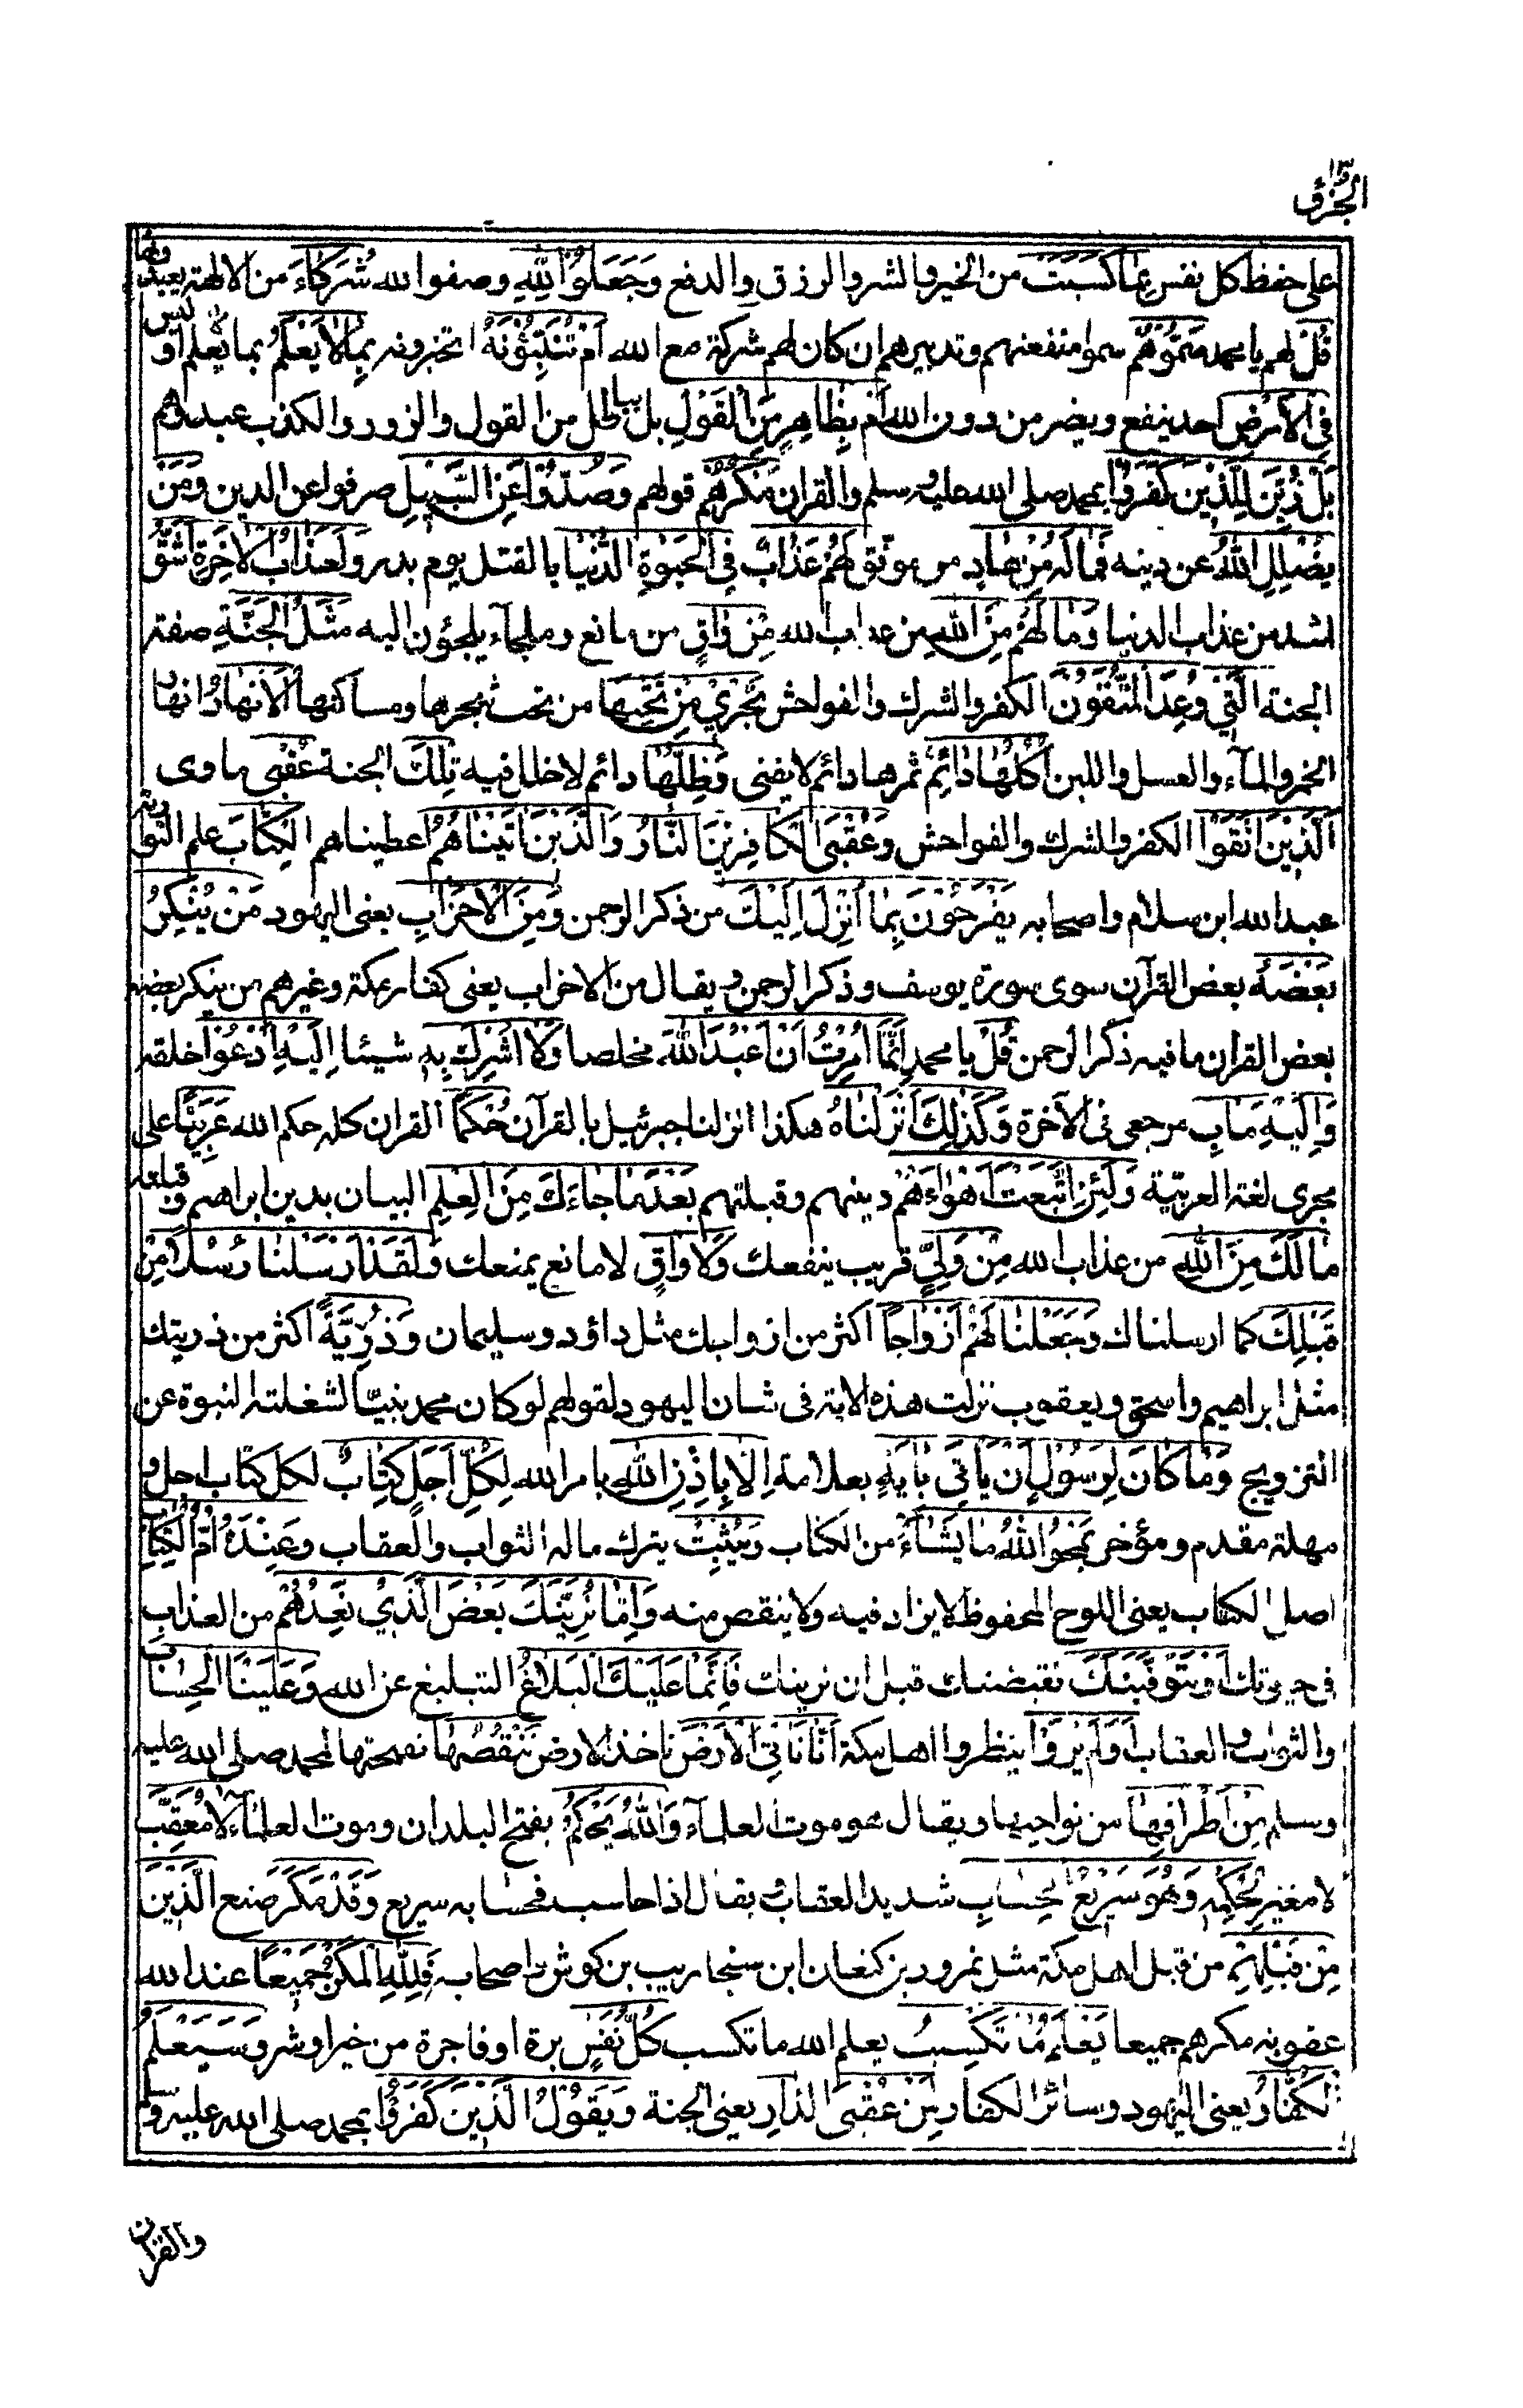 الجزؤ
على حفظ كل نفس بِمَا كَسَبَتْ من الخير والشر والرزق والدفع وَجَعَلُوْا لِلّٰهِ وصفوا لله شُرَكَاءَ من الالهة يعبدونها
قُلْ لهم يا محمد سَمُّوْهُمْ سموا منفعتهم وتدبيرهم ان كان لهم شركة مع الله اَمْ تُنَبِّئُوْنَهٗ اتخبرونه بِمَا لَا يَعْلَمُ بما يعلم ان ليس
فِي الْاَرْضِ احد ينفع ويضر من دون الله اَمْ بِظَاهِرٍ مِّنَ الْقَوْلِ بل بباطل من القول والزور والكذب عبدتم
بَلْ زُيِّنَ لِلَّذِيْنَ كَفَرُوْا بمحمد صلى الله عليه وسلم والقران مَكْرُهُمْ قولهم وَصُدُّوْا عَنِ السَّبِيْلِ صرفوا عن الدين وَمَنْ
يُضْلِلِ اللّٰهُ عن دينه فَمَا لَهٗ مِنْ هَادٍ من موفق لَهُمْ عَذَابٌ فِي الْحَيٰوةِ الدُّنْيَا بالقتل يوم بدر وَلَعَذَابُ الْاٰخِرَةِ اَشَقُّ
اشد من عذاب الدنيا وَمَا لَهُمْ مِّنَ اللّٰهِ من عذاب الله مِنْ وَّاقٍ من مانع وملجاء يلجؤن اليه مَثَلُ الْجَنَّةِ صفة
الجنة الَّتِيْ وُعِدَ الْمُتَّقُوْنَ الكفر والشرك والفواحش تَجْرِيْ مِنْ تَحْتِهَا من تحت شجرها ومساكنها الْاَنْهَارُ انهار
الخمر والمآء والعسل واللبن اُكُلُهَا دَائِمٌ ثمرها دائم لا يفنى وَظِلُّهَا دائم لا خلل فيه تِلْكَ الجنة عُقْبَى ماوى
الَّذِيْنَ اتَّقَوْا الكفر والشرك والفواحش وَعُقْبَى الْكَافِرِيْنَ النَّارُ وَالَّذِيْنَ اٰتَيْنَاهُمُ اعطيناهم الْكِتَابَ علم التورية
عبد الله ابن سلام واصحابه يَفْرَحُوْنَ بِمَا اُنْزِلَ اِلَيْكَ من ذكر الرحمن وَمِنَ الْاَحْزَابِ يعنى اليهود مَنْ يُّنْكِرُ
بَعْضَهٗ بعض القرآن سوى سورة يوسف وذكر الرحمن ويقال من الاحزاب يعنى كفار مكة وغيرهم من ينكر بعضه
بعض القران ما فيه ذكر الرحمن قُلْ يا محمد اِنَّمَا اُمِرْتُ اَنْ اَعْبُدَ اللّٰهَ مخلصا وَلَا اُشْرِكَ بِهٖ شيئا اِلَيْهِ اَدْعُوْا خلقه
وَاِلَيْهِ مَاٰبِ مرجعى فى الآخرة وَكَذٰلِكَ اَنْزَلْنَاهُ هكذا انزلنا جبرئيل بالقرآن حُكْمًا القران كله حكم الله عَرَبِيًّا على
مجرى لغة العربيّة وَلَئِنِ اتَّبَعْتَ اَهْوَاءَهُمْ دينهم وقبلتهم بَعْدَ مَا جَاءَكَ مِنَ الْعِلْمِ البيان بدين ابراهيم وقبلته
مَا لَكَ مِنَ اللّٰهِ من عذاب الله مِنْ وَلِيٍّ قريب ينفعك وَلَا وَاقٍ لا مانع يمنعك وَلَقَدْ اَرْسَلْنَا رُسُلًا مِّنْ
قَبْلِكَ كما ارسلناك وَجَعَلْنَا لَهُمْ اَزْوَاجًا اكثر من ازواجك مثل داؤد وسليمان وَذُرِّيَّةً اكثر من ذريتك
مثل ابراهيم واسحق ويعقوب نزلت هذه الاية فى شان اليهود لقولهم لو كان محمد نبيّا لشغلته النبوة عن
التزويج وَمَا كَانَ لِرَسُوْلٍ اَنْ يَّاْتِيَ بِاٰيَةٍ بعلامة اِلَّا بِاِذْنِ اللّٰهِ بامر الله لِكُلِّ اَجَلٍ كِتَابٌ لكل كتاب اجل و
مهلة مقدم ومؤخر يَمْحُوا اللّٰهُ مَا يَشَاءُ من الكتاب وَيُثْبِتُ يترك ماله الثواب والعقاب وَعِنْدَهٗ اُمُّ الْكِتَابِ
اصل الكتاب يعنى اللوح المحفوظ لا يزاد فيه ولا ينقص منه وَاِمَّا نُرِيَنَّكَ بَعْضَ الَّذِيْ نَعِدُهُمْ من العذاب
فى حيوتك اَوْ نَتَوَفَّيَنَّكَ نقبضنك قبل ان نرينك فَاِنَّمَا عَلَيْكَ الْبَلَاغُ التبليغ عن الله وَعَلَيْنَا الْحِسَابُ
والثواب والعقاب اَوَلَمْ يَرَوْا ينظروا اهل مكة اَنَّا نَاْتِي الْاَرْضَ ناخذ الارض نَنْقُصُهَا نفتحها لمحمد صلى الله عليه
وسلم مِنْ اَطْرَافِهَا من نواحيها ويقال هو موت العلمآء وَاللّٰهُ يَحْكُمُ بفتح البلدان وموت العلمآء لَا مُعَقِّبَ
لا مغير لِحُكْمِهٖ وَهُوَ سَرِيْعُ الْحِسَابِ شديد العقاب ويقال اذا حاسب فحسابه سريع وَقَدْ مَكَرَ صنع الَّذِيْنَ
مِنْ قَبْلِهِمْ من قبل اهل مكة مثل نمرود بن كنعان ابن سنجاريب بن كوش واصحابه فَلِلّٰهِ الْمَكْرُ جَمِيْعًا عند الله
عقوبة مكرهم جميعا يَعْلَمُ مَا تَكْسِبُ يعلم الله ما تكسب كُلُّ نَفْسٍ برة او فاجرة من خير او شر وَسَيَعْلَمُ
الْكُفَّارُ يعنى اليهود وسائر الكفار لِمَنْ عُقْبَى الدَّارِ يعنى الجنة وَيَقُوْلُ الَّذِيْنَ كَفَرُوْا بمحمد صلى الله عليه وسلم
والقران